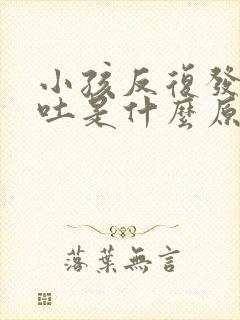 小孩反復發
吐是什麼原
落葉無言